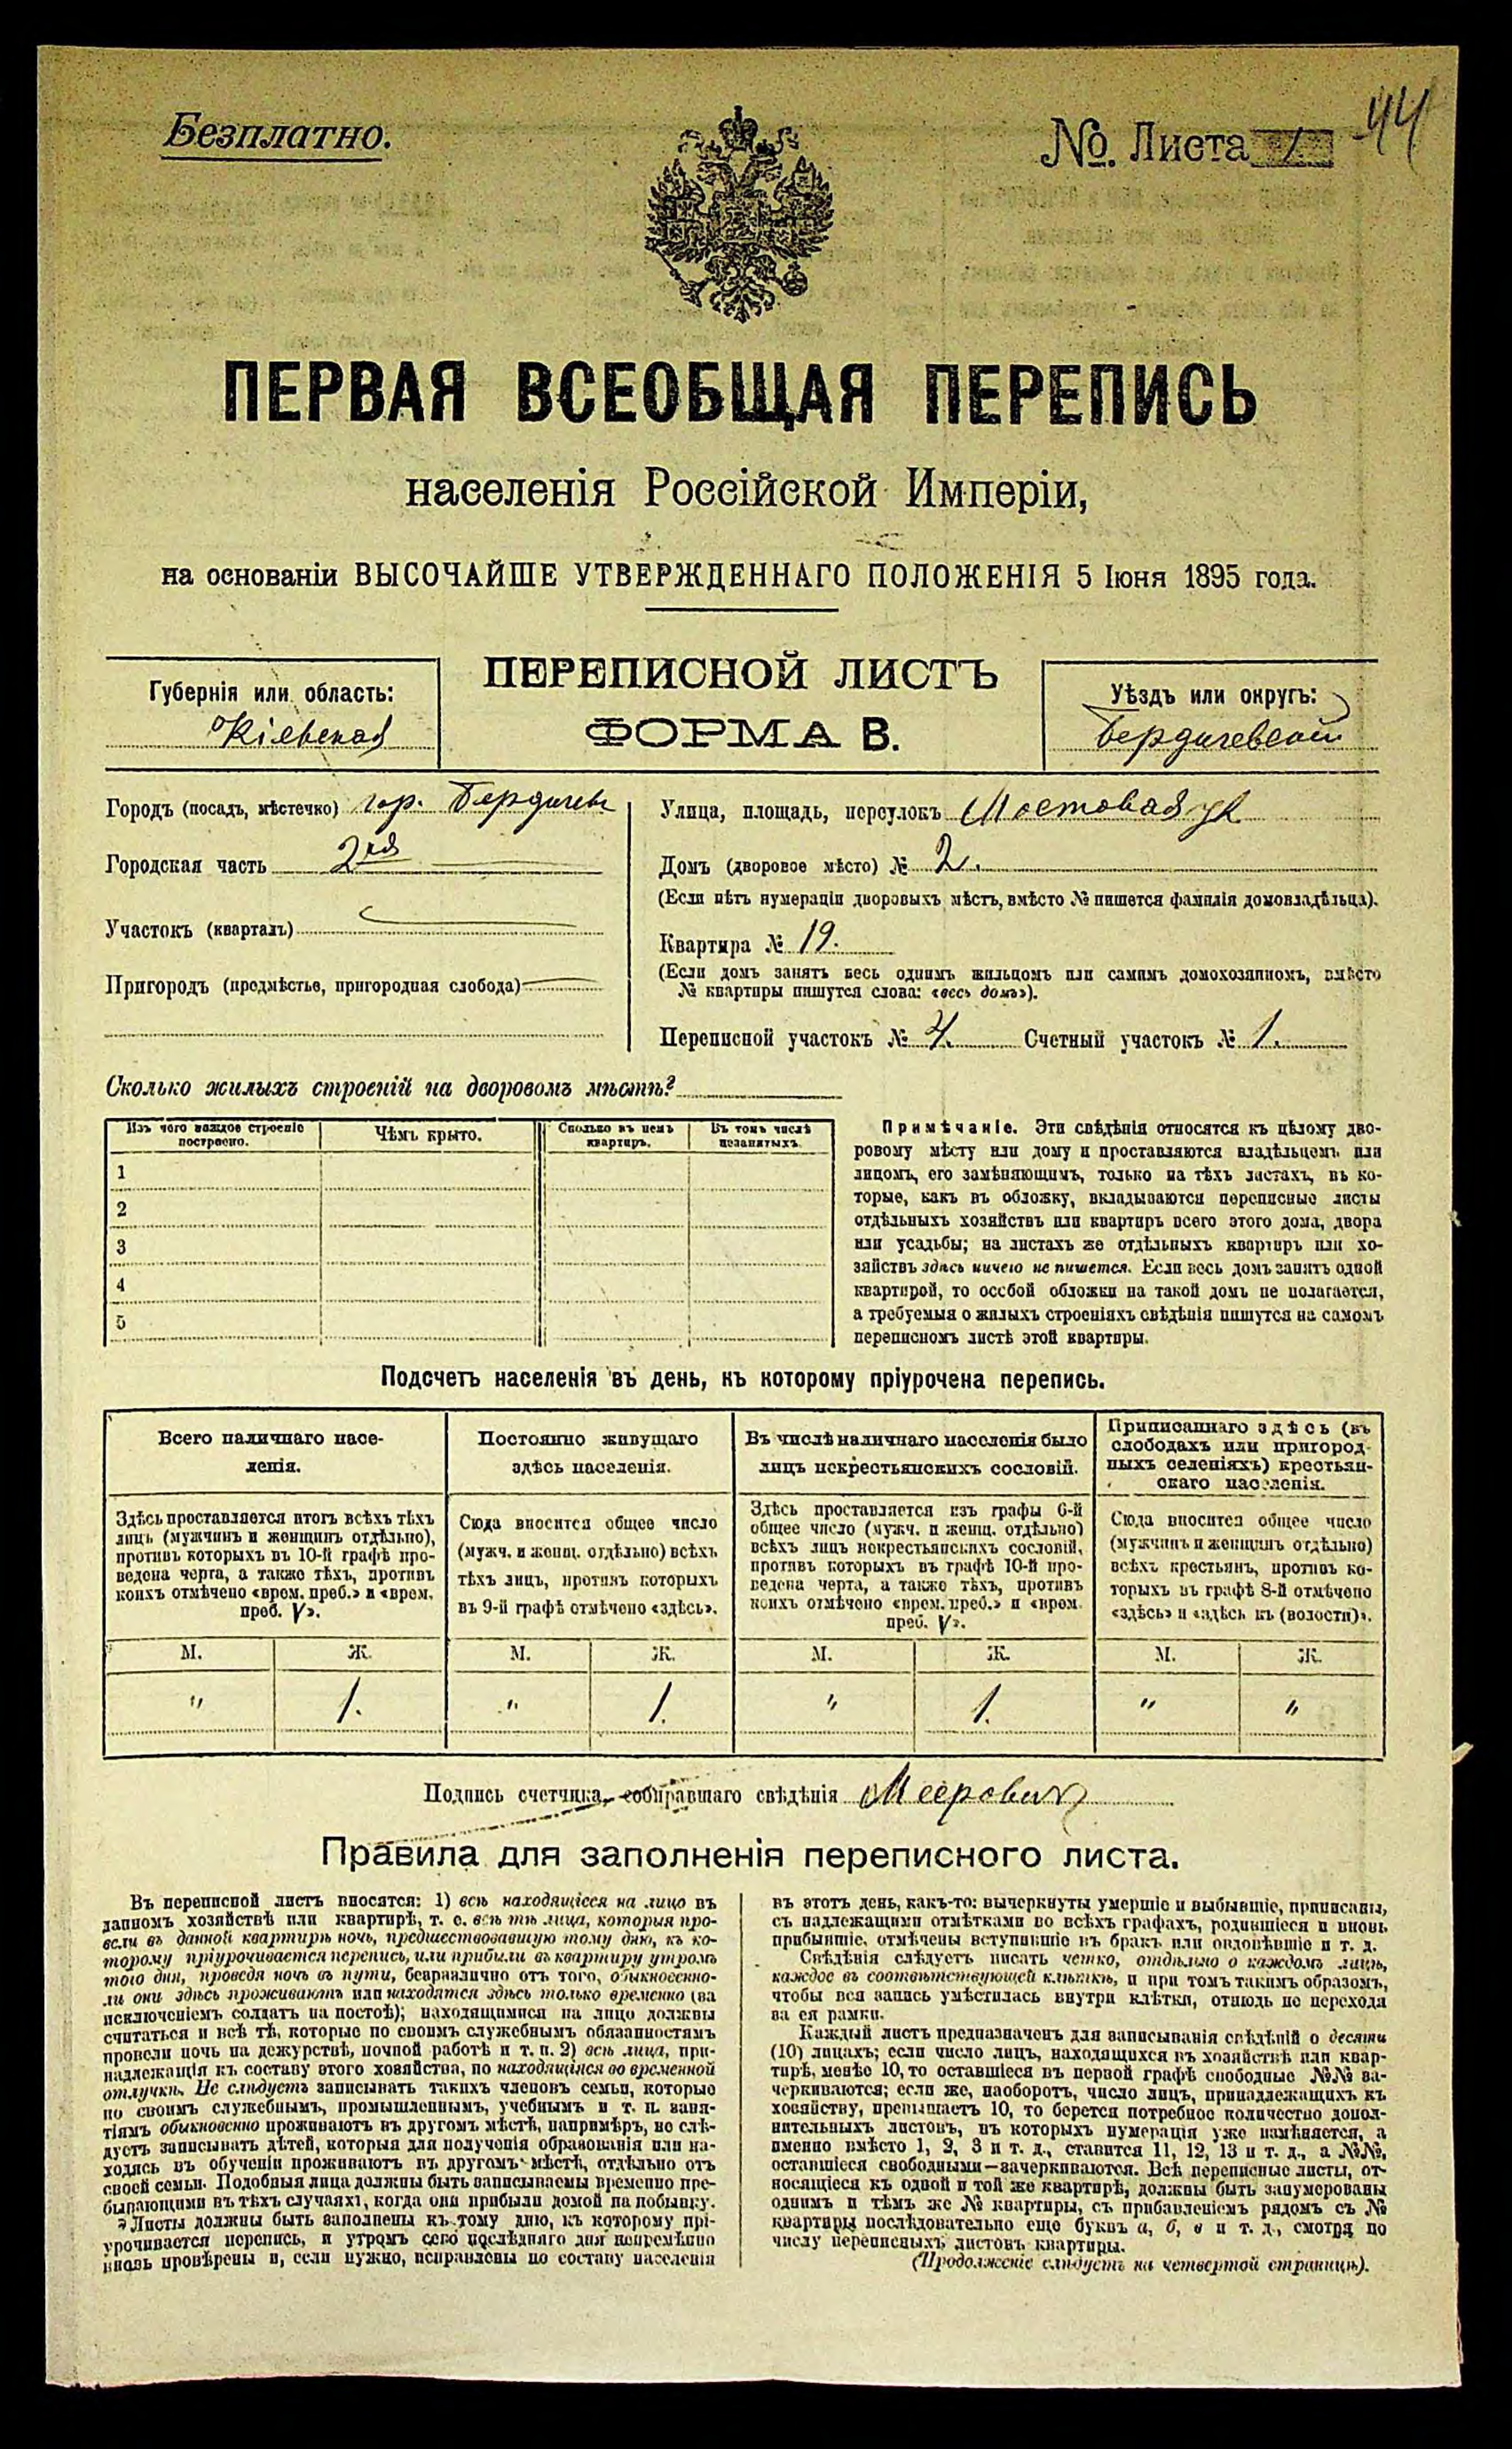 Безплатно.
№. Листа 1
44
ПЕРВАЯ ВСЕОБЩАЯ ПЕРЕПИСЬ
населенія Россійской Имперіи,
на основаніи ВЫСОЧАЙШЕ УТВЕРЖДЕННАГО ПОЛОЖЕНІЯ 5 Іюня 1895 года.
ПЕРЕПИСНОЙ ЛИСТЪ
ФОРМА В.
Губернія или область:
Кіевская
Уѣздъ или округъ:
Бердичевскій
Городъ (посадъ, мѣстечко) гор. Бердичевъ
Городская часть 2ая
Участокъ (кварталъ)
Пригородъ (предмѣстье, пригородная слобода)
Улица, площадь, переулокъ Мостовая ул
Домъ (дворовое мѣсто) № 2.
(Если нѣтъ нумераціи дворовыхъ мѣстъ, вмѣсто № пишется фамилія домовладѣльца).
Квартира № 19.
(Если домъ занятъ весь однимъ жильцомъ или самимъ домохозяиномъ, вмѣсто
№ квартиры пишутся слова: «весь домъ»).
Переписной участокъ № 4. Счетный участокъ № 1.
Сколько жилыхъ строеній на дворовомъ мѣстѣ?
Изъ чего каждое строеніе
построено.
Чѣмъ крыто.
Сколько въ немъ
квартиръ.
Въ томъ числѣ
незанятыхъ
1
2
3
4
5
Примѣчаніе. Эти свѣдѣнія относятся къ цѣлому дво-
ровому мѣсту или дому и проставляются владѣльцемъ или
лицомъ, его замѣняющимъ, только на тѣхъ листахъ, въ ко-
торые, какъ въ обложку, вкладываются переписные листы
отдѣльныхъ хозяйствъ или квартиръ всего этого дома, двора
или усадьбы; на листахъ же отдѣльныхъ квартиръ или хо-
зяйствъ здѣсь ничего не пишется. Если весь домъ занятъ одной
квартирой, то особой обложки на такой домъ не полагается,
а требуемыя о жилыхъ строеніяхъ свѣдѣнія пишутся на самомъ
переписномъ листѣ этой квартиры.
Подсчетъ населенія въ день, къ которому пріурочена перепись.
Всего наличнаго насе-
ленія.
Здѣсь проставляется итогъ всѣхъ тѣхъ
лицъ (мужчинъ и женщинъ отдѣльно),
противъ которыхъ въ 10-й графѣ про-
ведена черта, а также тѣхъ, противъ
коихъ отмѣчено «врем. преб.» и «врем.
преб. V».
Постоянно живущаго
здѣсь населенія.
Сюда вносится общее число
(мужч. и женщ. отдѣльно) всѣхъ
тѣхъ лицъ, противъ которыхъ
въ 9-й графѣ отмѣчено «здѣсь».
Въ числѣ наличнаго населенія было
лицъ некрестьянскихъ сословій.
Здѣсь проставляется изъ графы 6-й
общее число (мужч. и женщ. отдѣльно)
всѣхъ лицъ некрестьянскихъ сословій,
противъ которыхъ въ графѣ 10-й про-
ведена черта, а также тѣхъ, противъ
коихъ отмѣчено «врем. преб.» и «врем.
преб. V».
Приписаннаго здѣсь (въ
слободахъ или пригород-
ныхъ селеніяхъ) крестьян-
скаго населенія.
Сюда вносится общее число
(мужчинъ и женщинъ отдѣльно)
всѣхъ крестьянъ, противъ ко-
торыхъ въ графѣ 8-й отмѣчено
«здѣсь» и «здѣсь къ (волости)».
М. Ж. М. Ж. М. Ж. М. Ж.
" 1. " 1. " 1. " "
Подпись счетчика, собиравшаго свѣдѣнія Мееровичъ
Правила для заполненія переписного листа.
Въ переписной листъ вносятся: 1) всѣ находящіеся на лицо въ
данномъ хозяйствѣ или квартирѣ, т. е. всѣ тѣ лица, которыя про-
вели въ данной квартирѣ ночь, предшествовавшую тому дню, къ ко-
торому пріурочивается перепись, или прибыли въ квартиру утромъ
того дня, проведя ночь въ пути, безразлично отъ того, обыкновенно-
ли они здѣсь проживаютъ или находятся здѣсь только временно (за
исключеніемъ солдатъ на постоѣ); находящимися на лицо должны
считаться и всѣ тѣ, которые по своимъ служебнымъ обязанностямъ
провели ночь на дежурствѣ, ночной работѣ и т. п. 2) всѣ лица, при-
надлежащія къ составу этого хозяйства, но находящіяся во временной
отлучкѣ. Не слѣдуетъ записывать такихъ членовъ семьи, которые
по своимъ служебнымъ, промышленнымъ, учебнымъ и т. п. заня-
тіямъ обыкновенно проживаютъ въ другомъ мѣстѣ, напримѣръ, не слѣ-
дуетъ записывать дѣтей, которыя для полученія образованія или на-
ходясь въ обученіи проживаютъ въ другомъ мѣстѣ, отдѣльно отъ
своей семьи. Подобныя лица должны быть записываемы временно пре-
бывающими въ тѣхъ случаяхъ, когда они прибыли домой на побывку.
Листы должны быть заполнены къ тому дню, къ которому прі-
урочивается перепись, и утромъ сего послѣдняго дня непремѣнно
вновь провѣрены и, если нужно, исправлены по составу населенія
въ этотъ день, какъ-то: вычеркнуты умершіе и выбывшіе, приписаны,
съ надлежащими отмѣтками во всѣхъ графахъ, родившіеся и вновь
прибывшіе, отмѣчены вступившіе въ бракъ или овдовѣвшіе и т. д.
Свѣдѣнія слѣдуетъ писать четко, отдѣльно о каждомъ лицѣ,
каждое въ соотвѣтствующей клѣткѣ, и при томъ такимъ образомъ,
чтобы вся запись умѣстилась внутри клѣтки, отнюдь не переходя
за ея рамки.
Каждый листъ предназначенъ для записыванія свѣдѣній о десяти
(10) лицахъ; если число лицъ, находящихся въ хозяйствѣ или квар-
тирѣ, менѣе 10, то оставшіеся въ первой графѣ свободные №№ за-
черкиваются; если же, наоборотъ, число лицъ, принадлежащихъ къ
хозяйству, превышаетъ 10, то берется потребное количество допол-
нительныхъ листовъ, въ которыхъ нумерація уже измѣняется, а
именно вмѣсто 1, 2, 3 и т. д., ставится 11, 12, 13 и т. д., а №№,
оставшіеся свободными—зачеркиваются. Всѣ переписные листы, от-
носящіеся къ одной и той же квартирѣ, должны быть занумерованы
однимъ и тѣмъ же № квартиры, съ прибавленіемъ рядомъ съ №
квартиры послѣдовательно еще буквъ а, б, в и т. д., смотря по
числу переписныхъ листовъ квартиры.
(Продолженіе слѣдуетъ на четвертой страницѣ).